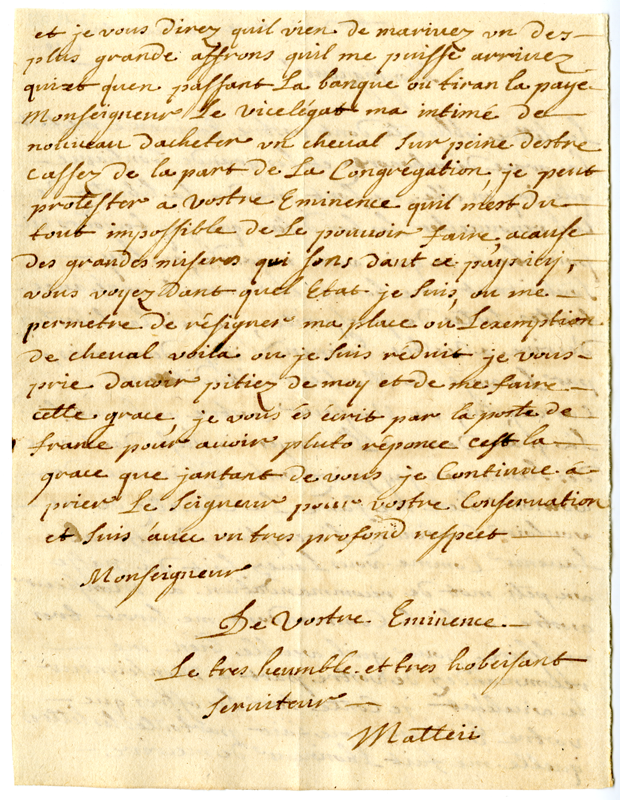 et je vous direz quil vien de marivez vn des
plus grande affrons quil me puisse arrivez
quizt quen passant La banque ou tiran la paye
Monseigneur Le vicelégat ma intimé de
nouveau dacheter vn cheval sur peine destre
Cassez de la part de La Congrégation, je peut
protester a vostre Eminence quil mest du
tout impossible de Le pouvoir faire, acause
des grandes miseres qui sons dant ce pays icy,
vous voyez dant quel Etat je suis, ou me
permetre de résigner ma place ou Lexemption
de cheval voila ou je suis réduit je vous
prie davoir pitiez de moy et de me faire
cette grace, je vous és écrit par la poste de
france pour avoir pluto réponce cest la
grace que jantant de vous je Continue á
prier Le Seigneur pour vostre Conservation
et suis avec vn tres profond respect
Monseigneur
De Vostre Eminence.
Le tres heumble et tres hobeissant
serviteur
Matteii